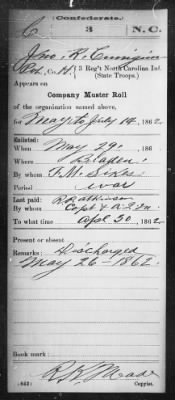 Confederate.
C 3 N.C.
Jno. R.
Pvt., Co. H, 3 Reg't North Carolina Inf.
(State Troops.)
Appears on
Company Muster Roll
of the organization named above,
for May to July 14, 1862.
Enlisted:
When May 29, 186
Where Bladen
By whom F. M. Sikes
Period war
Last paid:
By whom Capt & A.Q.M.
To what time Apl 30, 1862
Present or absent
Remarks: Discharged
May 26-1862.
Book mark:
R. H. Meade
(642) Copyist.